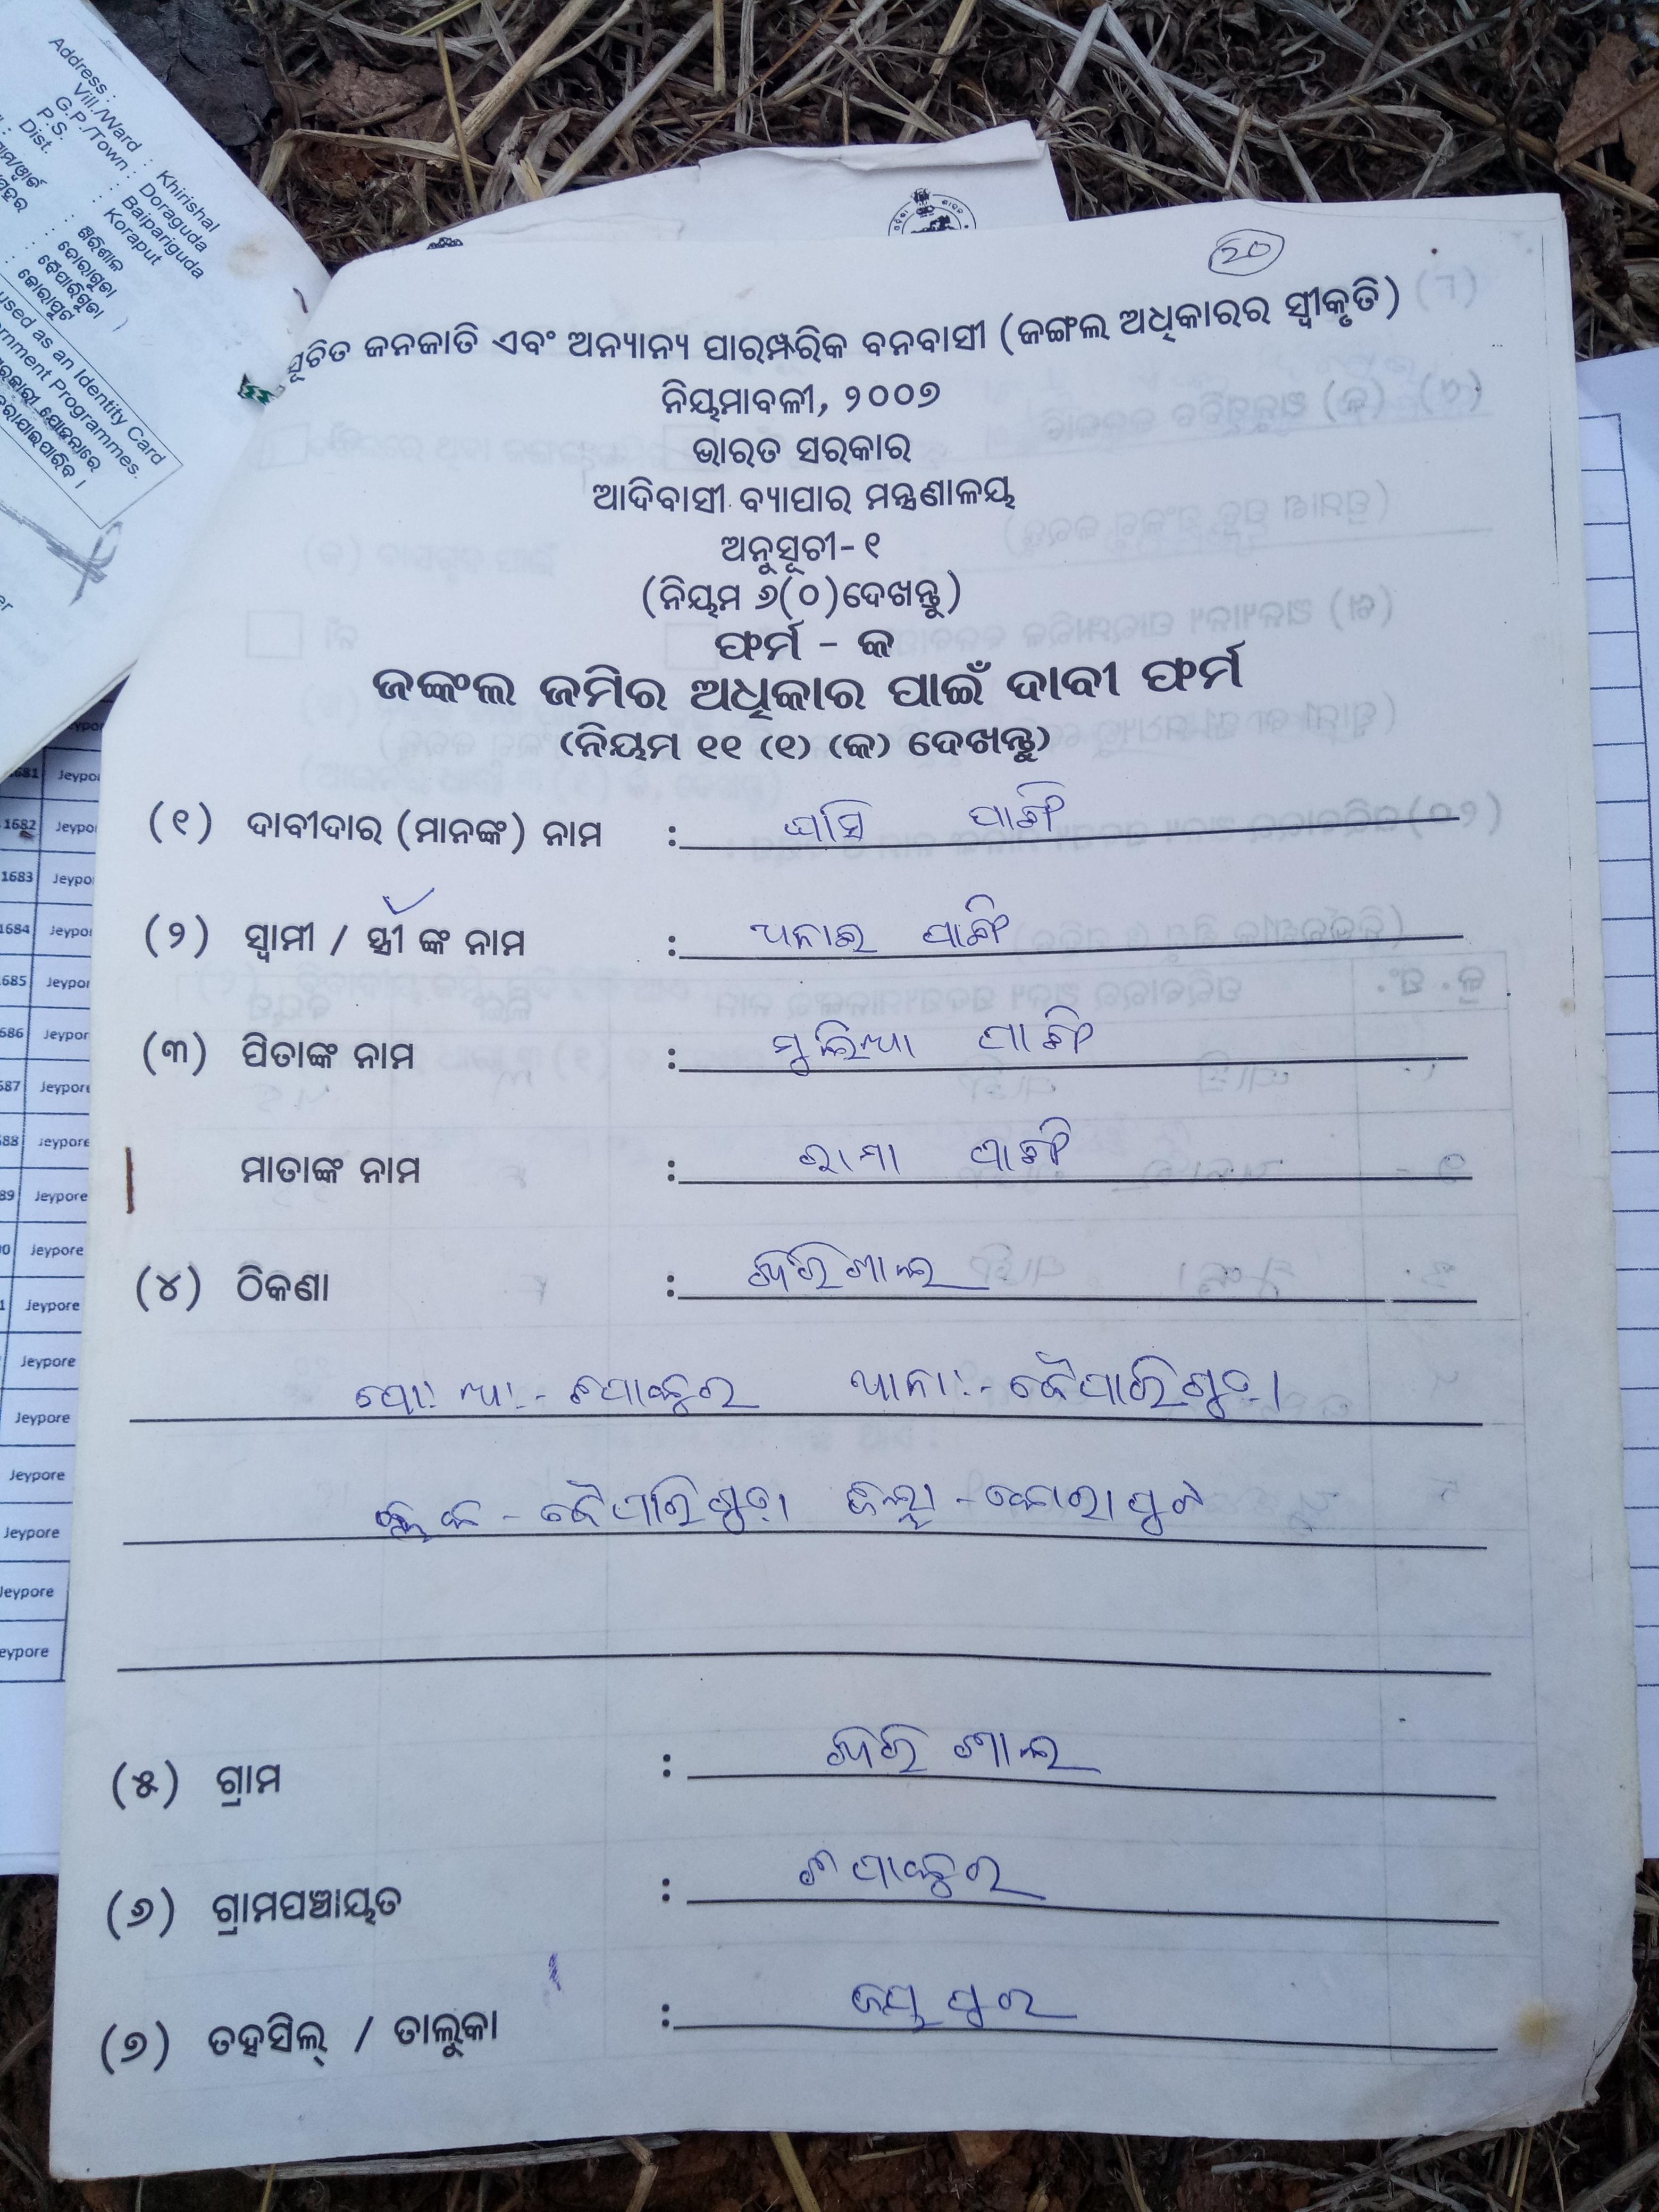 Address :
Vill./Ward : Khirishal
G.P./Town : Doraguda
P.S. : Baipariguda
Dist. : Koraput
: ଖିରିଶାଳ
: ଡୋରାଗୁଡା
: ବୈପାରିଗୁଡା
: କୋରାପୁଟ
used as an Identity Card
Programmes.
20
ସୂଚିତ ଜନଜାତି ଏବଂ ଅନ୍ୟାନ୍ୟ ପାରମ୍ପରିକ ବନବାସୀ (ଜଙ୍ଗଲ ଅଧିକାରର ସ୍ୱୀକୃତି)
ନିୟମାବଳୀ, ୨୦୦୭
ଭାରତ ସରକାର
ଆଦିବାସୀ ବ୍ୟାପାର ମନ୍ତ୍ରଣାଳୟ
ଅନୁସୂଚୀ-୧
(ନିୟମ ୬(୦)ଦେଖନ୍ତୁ)
ଫର୍ମ - କ
ଜଙ୍ଗଲ ଜମିର ଅଧିକାର ପାଇଁ ଦାବୀ ଫର୍ମ
(ନିୟମ ୧୧ (୧) (କ) ଦେଖନ୍ତୁ)
(୧) ଦାବୀଦାର (ମାନଙ୍କ) ନାମ : ଘାସି ପାଙ୍ଗି
(୨) ସ୍ୱାମୀ / ସ୍ତ୍ରୀ ଙ୍କ ନାମ : ପାଙ୍ଗି
(୩) ପିତାଙ୍କ ନାମ : ମୁଲିଆ ପାଙ୍ଗି
ମାତାଙ୍କ ନାମ : ପାଙ୍ଗି
(୪) ଠିକଣା : ଖିରିଶାଲ
ପୋ: ଅା:- ଥାନା:- ବୈପାରିଗୁଡ଼ା
ବ୍ଲକ - ବୈପାରିଗୁଡ଼ା ଜିଲ୍ଲା - କୋରାପୁଟ
(୫) ଗ୍ରାମ : ଖିରିଶାଲ
(୬) ଗ୍ରାମପଞ୍ଚାୟତ :
(୭) ତହସିଲ୍ / ତାଲୁକା : ଜୟପୁର
1681 Jeypo
1682 Jeypo
1683 Jeypo
1684 Jeypo
685 Jeypor
686 Jeypor
687 Jeypore
688 Jeypore
89 Jeypore
90 Jeypore
1 Jeypore
Jeypore
Jeypore
Jeypore
Jeypore
Jeypore
eypore